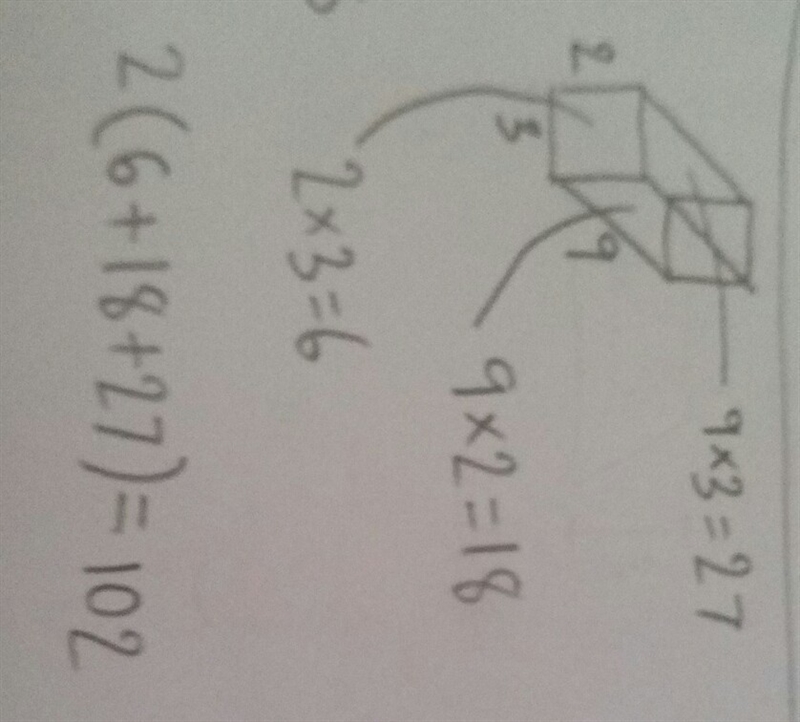 9×3=27
2
3
9
9×2=18
2×3=6
2(6+18+27)=102